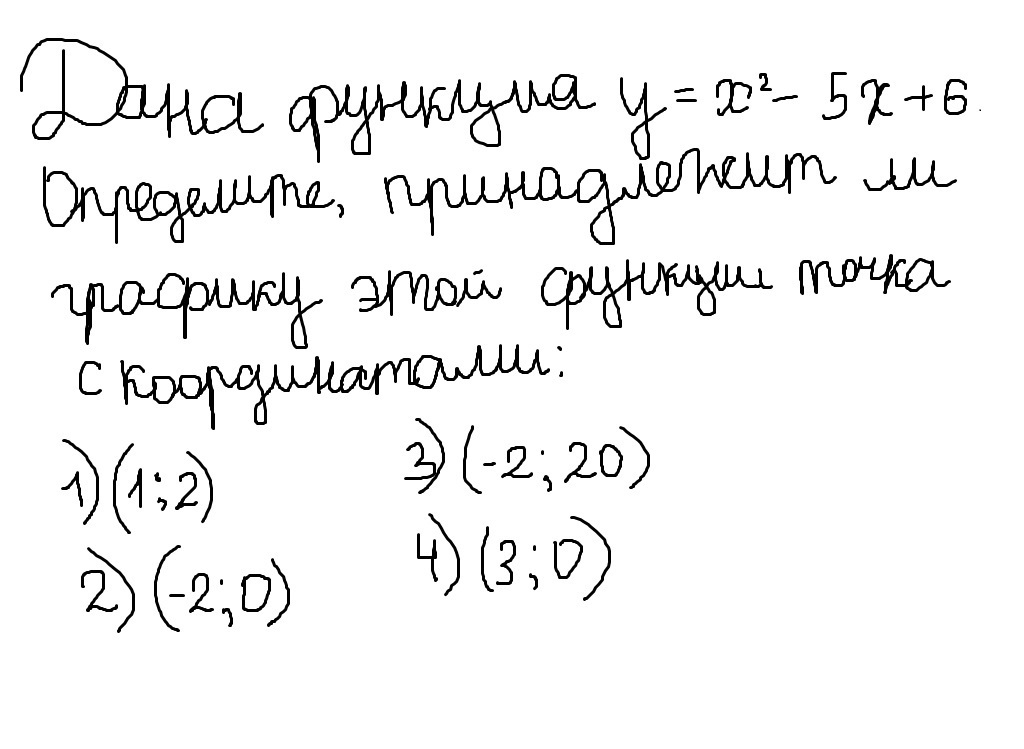 Дана функция y = x² - 5x + 6.
Определите, принадлежит ли
графику этой функции точка
с координатами:
1) (1; 2)
2) (-2; 0)
3) (-2; 20)
4) (3; 0)